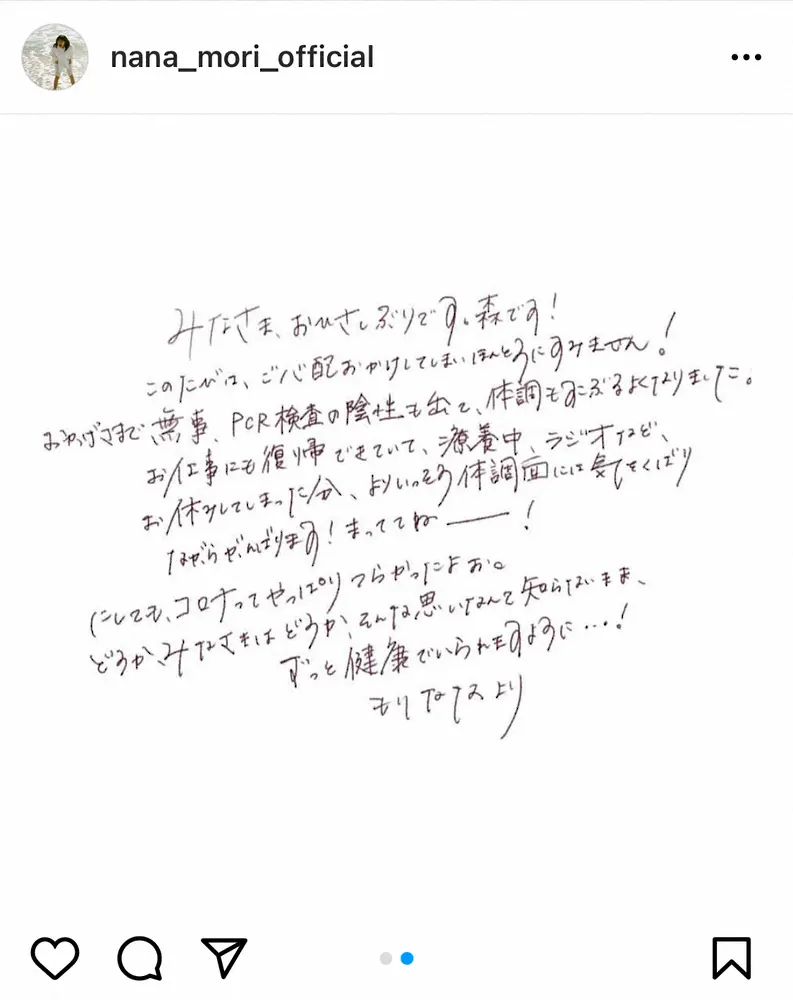 nana_mori_official
みなさま、おひさしぶりです。森です!
このたびは、ご心配おかけしてしまいほんとうにすみません!
おかげさまで無事、PCR検査の陰性も出て、体調もすこぶるよくなりました。
お仕事にも復帰できていて、療養中、ラジオなど、
お休みしてしまった分、よりいっそう体調面には気をくばり
ながらがんばります!まっててねー!
にしても、コロナってやっぱりつらかったよお。
どうか、みなさまはどうか、そんな思いなんて知らないまま、
ずっと健康でいられますように…!
もりななより